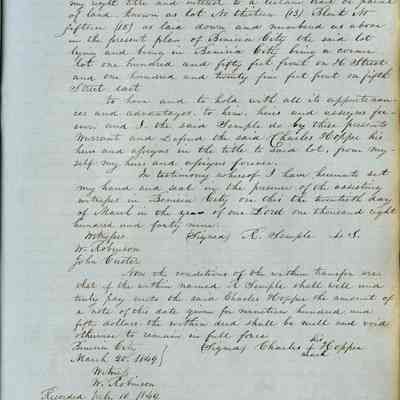 my right title and interest to a certain tract or parcel
of land known as lot No thirteen (13) Block No
fifteen (15) as laid down and numbered as above
in the present plan of Benicia City the said lot
lying and being in Benicia City being a corner
lot one hundred and fifty feet front on H Street
and one hundred and twenty five feet front on fifth
Street East
to have and to hold with all its appurtenan-
ces and advantages to him, heirs and assigns for-
ever and I the said Semple do by these presents
Warrant and Defend the said Charles Hoppe his
heirs and assigns in the title to said lot, from my-
self my heirs and assigns forever.
In testimony whereof I have hereunto set
my hand and seal in the presence of the assisting
witnesses in Benicia City on this the twentieth day
of March in the year of our Lord one thousand eight
hundred and forty nine.
Witness Signed R. Semple L. S.
W. Robinson
John Custer
Now the conditions of the within transfer are
that if the within named R Semple shall well and
truly pay unto the said Charles Hoppe the amount of
a note of this date given for nineteen hundred and
fifty dollars the within deed shall be null and void
otherwise to remain in full force.
Benicia City (Signed) Charles his Hoppe
March 20, 1849 mark
Witness
W. Robinson
Recorded July 10, 1849